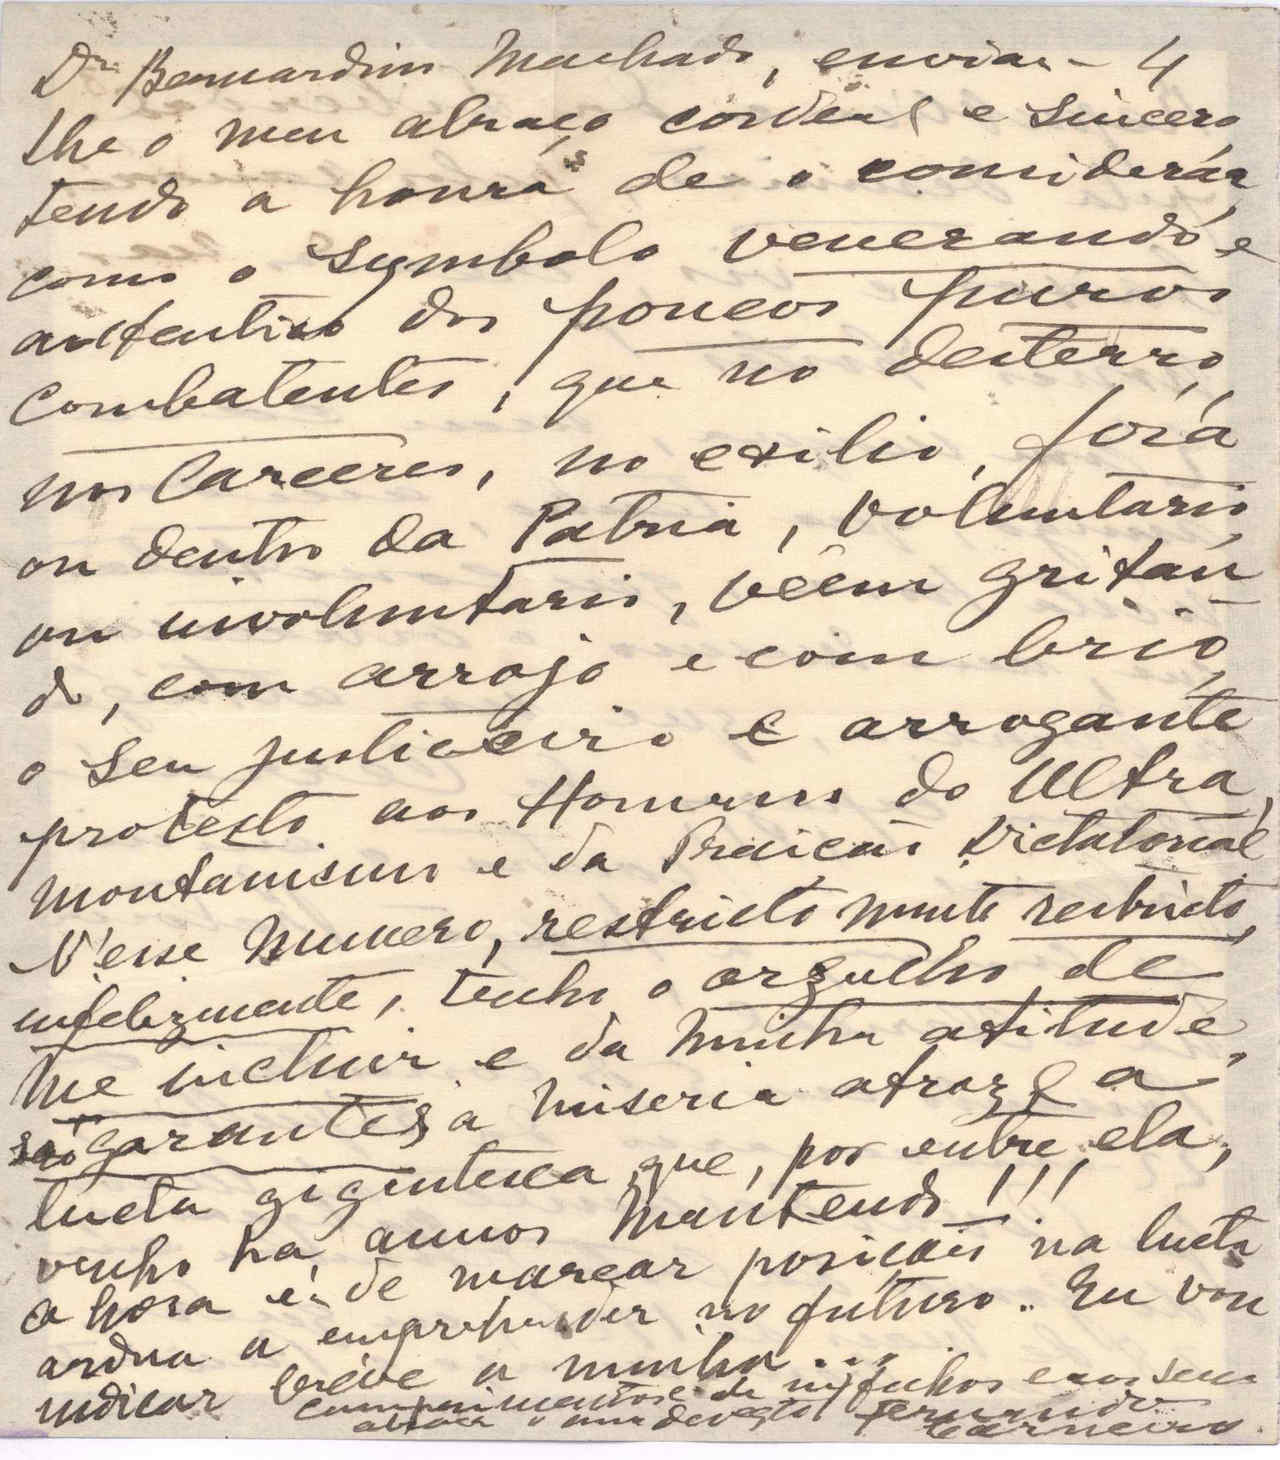 Dr Bernardino Machado, enviar- 4
lhe o meu abraço cordeal e sincero,
tendo a honra de o considerár
como o symbolo venerando e
autentico dos poucos puros
combatentes, que no desterro,
nos carceres, no exilio, fóra
ou dentro da Patria, voluntario
ou involuntario, vêem gritan
do, com arrojo e com brio,
o seu justiceiro e arrogante
protesto aos Homens do Ultra
montanismo e da Traição Dictatorial
N'esse numero, restricto muito restricto,
infelizmente, tenho o orgulho de
me incluir e da minha atitude,
são garantes, a miseria atroz e a
lucta gigantesca que, por entre ela,
venho ha annos mantendo!!!
a hora é de marcar posição na lucta
ardua a emprehender no futuro. Eu vou
indicar bréve a minha...
cumprimentos de m/ filhos e aos seus
abraça o mui devoto Fernando
Carneiro